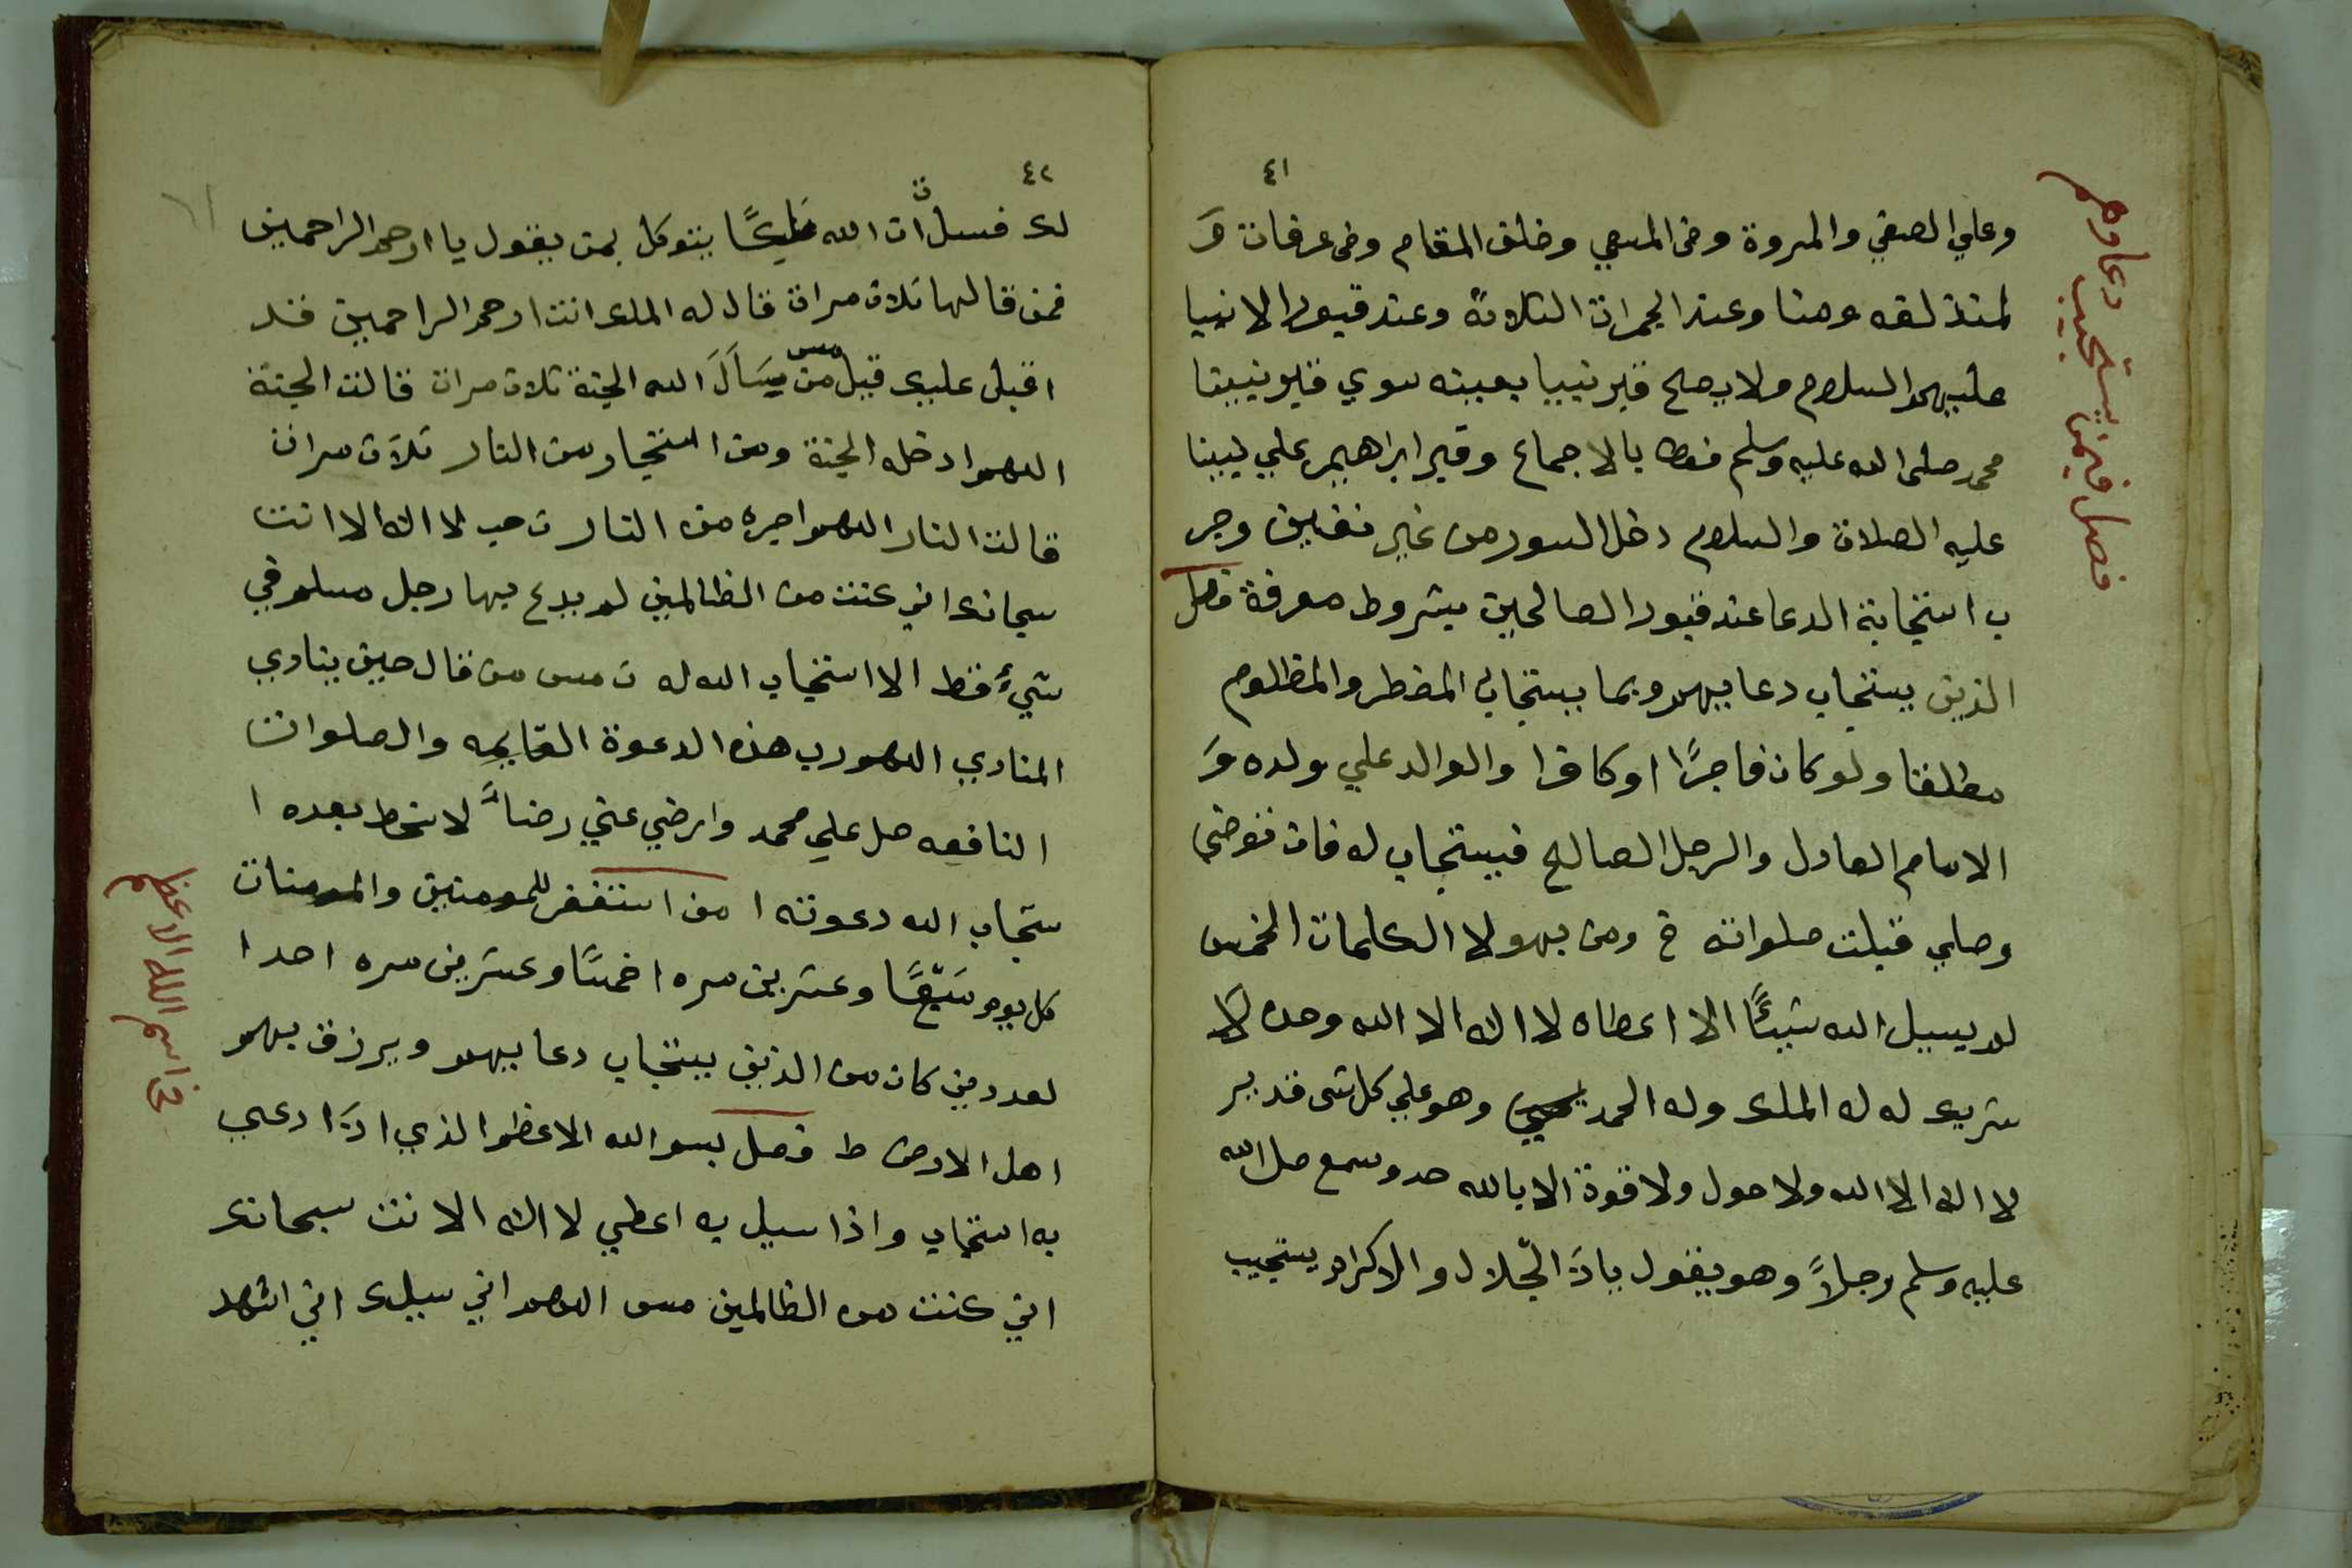 ٤١
وعلي الصفي والمروة وفى المسعي وخلف المقام وفى عرفات وَ
لمنذلفه ومنا وعند الجمرات الثلاثة وعند قبور الانبيا
عليهم السلام ولا يصلح قبر نبيا بعينه سوي قبر نبينا
محمد صلى الله عليه وسلم فقط بالاجماع وقبر ابراهيم علي نبينا
عليه الصلاة والسلام دخل السور من غير تعيين وجر
ب استجابة الدعا عند قبور الصالحين بشروط معرفة فصل
الذين يستجاب دعايهم وبما يستجاب المضطر والمظلوم
مطلقا ولو كان فاجرًا او كافرا والوالد علي ولده وَ
الامام العادل والرجل الصالح فيستجاب له فان توضي
وصلي قبلت صلواته خ ومن بهولا الكلمات الخمس
لم يسيل الله شيئًا الا اعطاه لا اله الا الله وحده لا
شريك له له الملك وله الحمد وهو علي كل شى قدير
لا اله الا الله ولا حول ولا قوة الا بالله وسمع صل الله
عليه وسلم رجلاً وهو يقول ياذَا الجّلال والاكرام يستجيب
فصل فيمن يستجيب دعاوهم
٤٢
لك فسل ان الله ملكًا يتوكل بمن يقول يا ارحم الراحمين
فمن قالها ثلاث مرات قال له الملك انت ارحم الراحمين قد
اقبل عليك قيل من يسَاَلَ الله الجنة ثلاث مرات قالت الجنة
اللهم ادخله الجنة ومن استجار من النار ثلاث مرات
قالت النار اللهم اجيره من النار ت حب لا اله الا انت
سبحانك اني كنت من الظالمين لم يدع بها رجل مسلم في
شيءٍ فقط الا استجاب الله له ت مس من قال حين ينادي
المنادي اللهم رب هذه الدعوة القايمه والصلوات
النافعه صل علي محمد وارضي عني رضاً لا سخط بعده ا
ستجاب الله دعوته ا من استغفر للمومنين والمومنات
كل يوم سَبْعًا وعشرين مره ا خمسًا وعشرين مره احدا
لعددين كان من الذين يستجاب دعايهم ويرزق بهم
اهل الارض ط فصل بسم الله الاعظم الذي اذَا دعي
به استجاب واذا سيل به اعطي لا اله الا نت سبحانك
اني كنت من الظالمين مس اللهم اني سيلك اني اشهد
فى اسم الله الاعظم